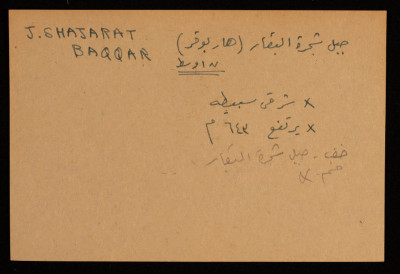 J. SHAJARAT
BAQQAR
جبل شجرة البقار (هار بوقر)
x شرقي سبيطه
x يرتفع ٦٤٣ م
جبل شجرة البقار
x